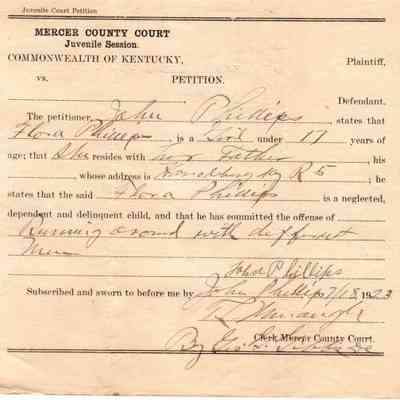 Juvenile Court Petition
MERCER COUNTY COURT
Juvenile Session.
COMMONWEALTH OF KENTUCKY,
Plaintiff,
vs. PETITION.
Defendant.
The petitioner, John Phillips, states that
Flora Phillips, is a Girl under 17 years of
age; that She resides with her Father, his
, whose address is Ky R 5; he
states that the said Flora Phillips is a neglected,
dependent and delinquent child, and that he has committed the offense of
Running around with different
Men
John Phillips
Subscribed and sworn to before me by John Phillips 7/18 1923
Clerk Mercer County Court.
By Geo.